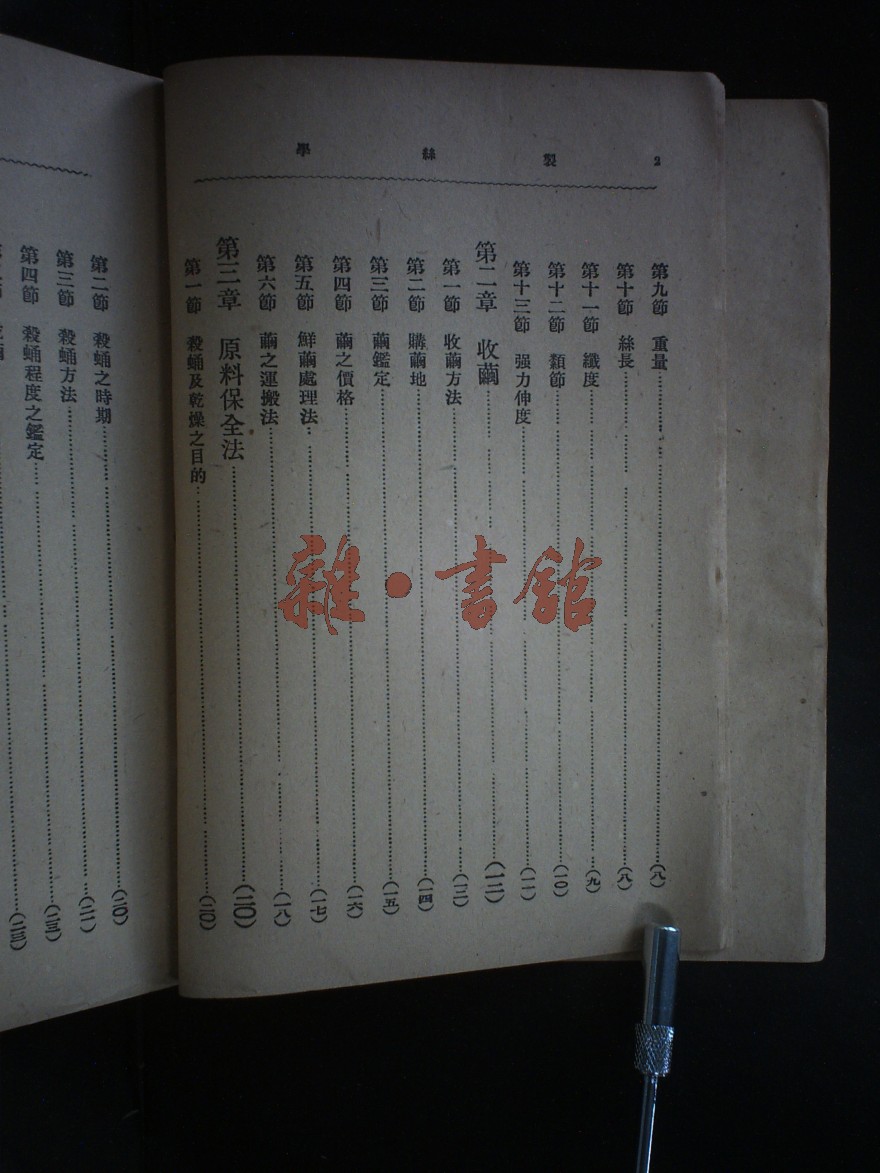 2 製絲學
第九節 重量……(八)
第十節 絲長……(八)
第十一節 纖度……(九)
第十二節 類節……(一〇)
第十三節 强力伸度……(一一)
第二章 收繭……(一二)
第一節 收繭方法……(一二)
第二節 購繭地……(一四)
第三節 繭鑑定……(一五)
第四節 繭之價格……(一六)
第五節 鮮繭處理法……(一七)
第六節 繭之運搬法……(一八)
第三章 原料保全法……(二〇)
第一節 殺蛹及乾燥之目的……(二〇)
第二節 殺蛹之時期……(二〇)
第三節 殺蛹方法……(二一)
第四節 殺蛹程度之鑑定……(二三)
……(二三)
雜·書館